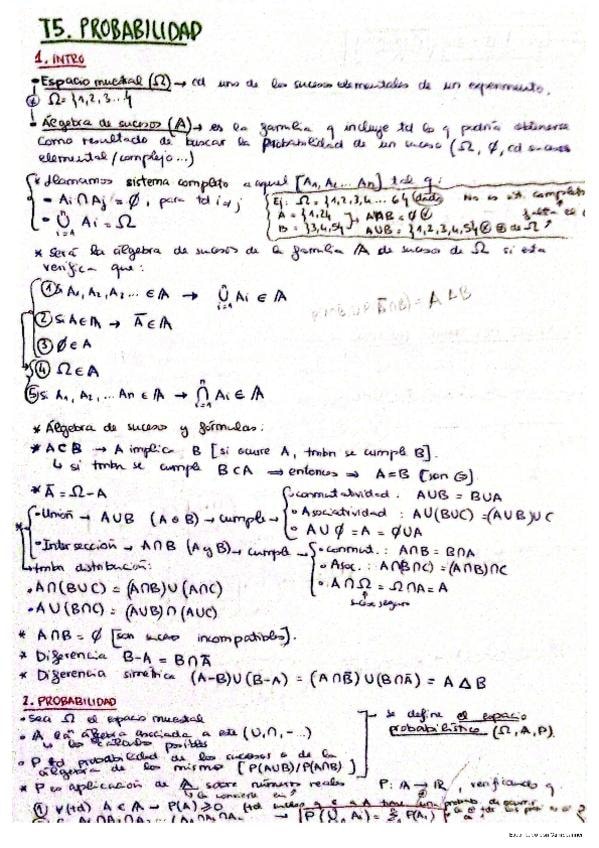 T5. PROBABILIDAD
1. INTRO
• Espacio muestral (Ω) → cd uno de los sucesos elementales de un experimento.
Ω = {1,2,3...}
• Álgebra de sucesos (A) → es la familia q incluye td lo q podría obtenerse
como resultado de buscar la probabilidad de un suceso (Ω, ∅, cd suceso
elemental/complejo...)
* Llamamos sistema completo a aquel [A₁, A₂... An] tal q:
- Ai ∩ Aj = ∅, para td i≠j
- ⋃ⁿᵢ₌₁ Ai = Ω
Ej: Ω = {1,2,3,4... 6} dado
A = {1,2} → A∩B = ∅
B = {3,4,5} A∪B = {1,2,3,4,5}
No es sist. completo
* Será la álgebra de sucesos de la familia A de sucesos de Ω si esta
verifica que:
① Si A₁, A₂, A₃... ∈ A → ⋃ⁿᵢ₌₁ Ai ∈ A
② Si A ∈ A → Ā ∈ A
③ ∅ ∈ A
④ Ω ∈ A
⑤ Si A₁, A₂, ... An ∈ A → ⋂ⁿᵢ₌₁ Ai ∈ A
* Álgebra de sucesos y fórmulas:
* A⊂B → A implica B [si ocurre A, tmbn se cumple B].
↳ si tmbn se cumple B⊂A ⟶ entonces ⟹ A=B [son =].
* Ā = Ω - A
• Unión → A∪B (A o B) → cumple →
• conmutatividad: A∪B = B∪A
• Asociatividad: A∪(B∪C) = (A∪B)∪C
• A∪∅ = A = ∅∪A
• Intersección → A∩B (A y B) → cumple →
• conmut.: A∩B = B∩A
• Asoc.: A∩(B∩C) = (A∩B)∩C
• A∩Ω = Ω∩A = A
suceso seguro
↳ tmbn distribución:
• A∩(B∪C) = (A∩B)∪(A∩C)
• A∪(B∩C) = (A∪B)∩(A∪C)
* A∩B = ∅ [son suceso incompatibles].
* Diferencia B-A = B∩Ā
* Diferencia simétrica (A-B)∪(B-A) = (A∩B̄)∪(B∩Ā) = A △ B
2. PROBABILIDAD
• Sea Ω el espacio muestral
• A la álgebra asociada a este (∪,∩,-...)
↳ los cálculos posibles
• P td probabilidad de los sucesos o de la
álgebra de los mismos [P(A∪B)/P(A∩B)]
→ se define el espacio
probabilístico (Ω, A, P).
* P es aplicación de A sobre números reales P: A → ℝ, verificando q
↳ la convierte en
① ∀(td) A ∈ A → P(A) ≥ 0